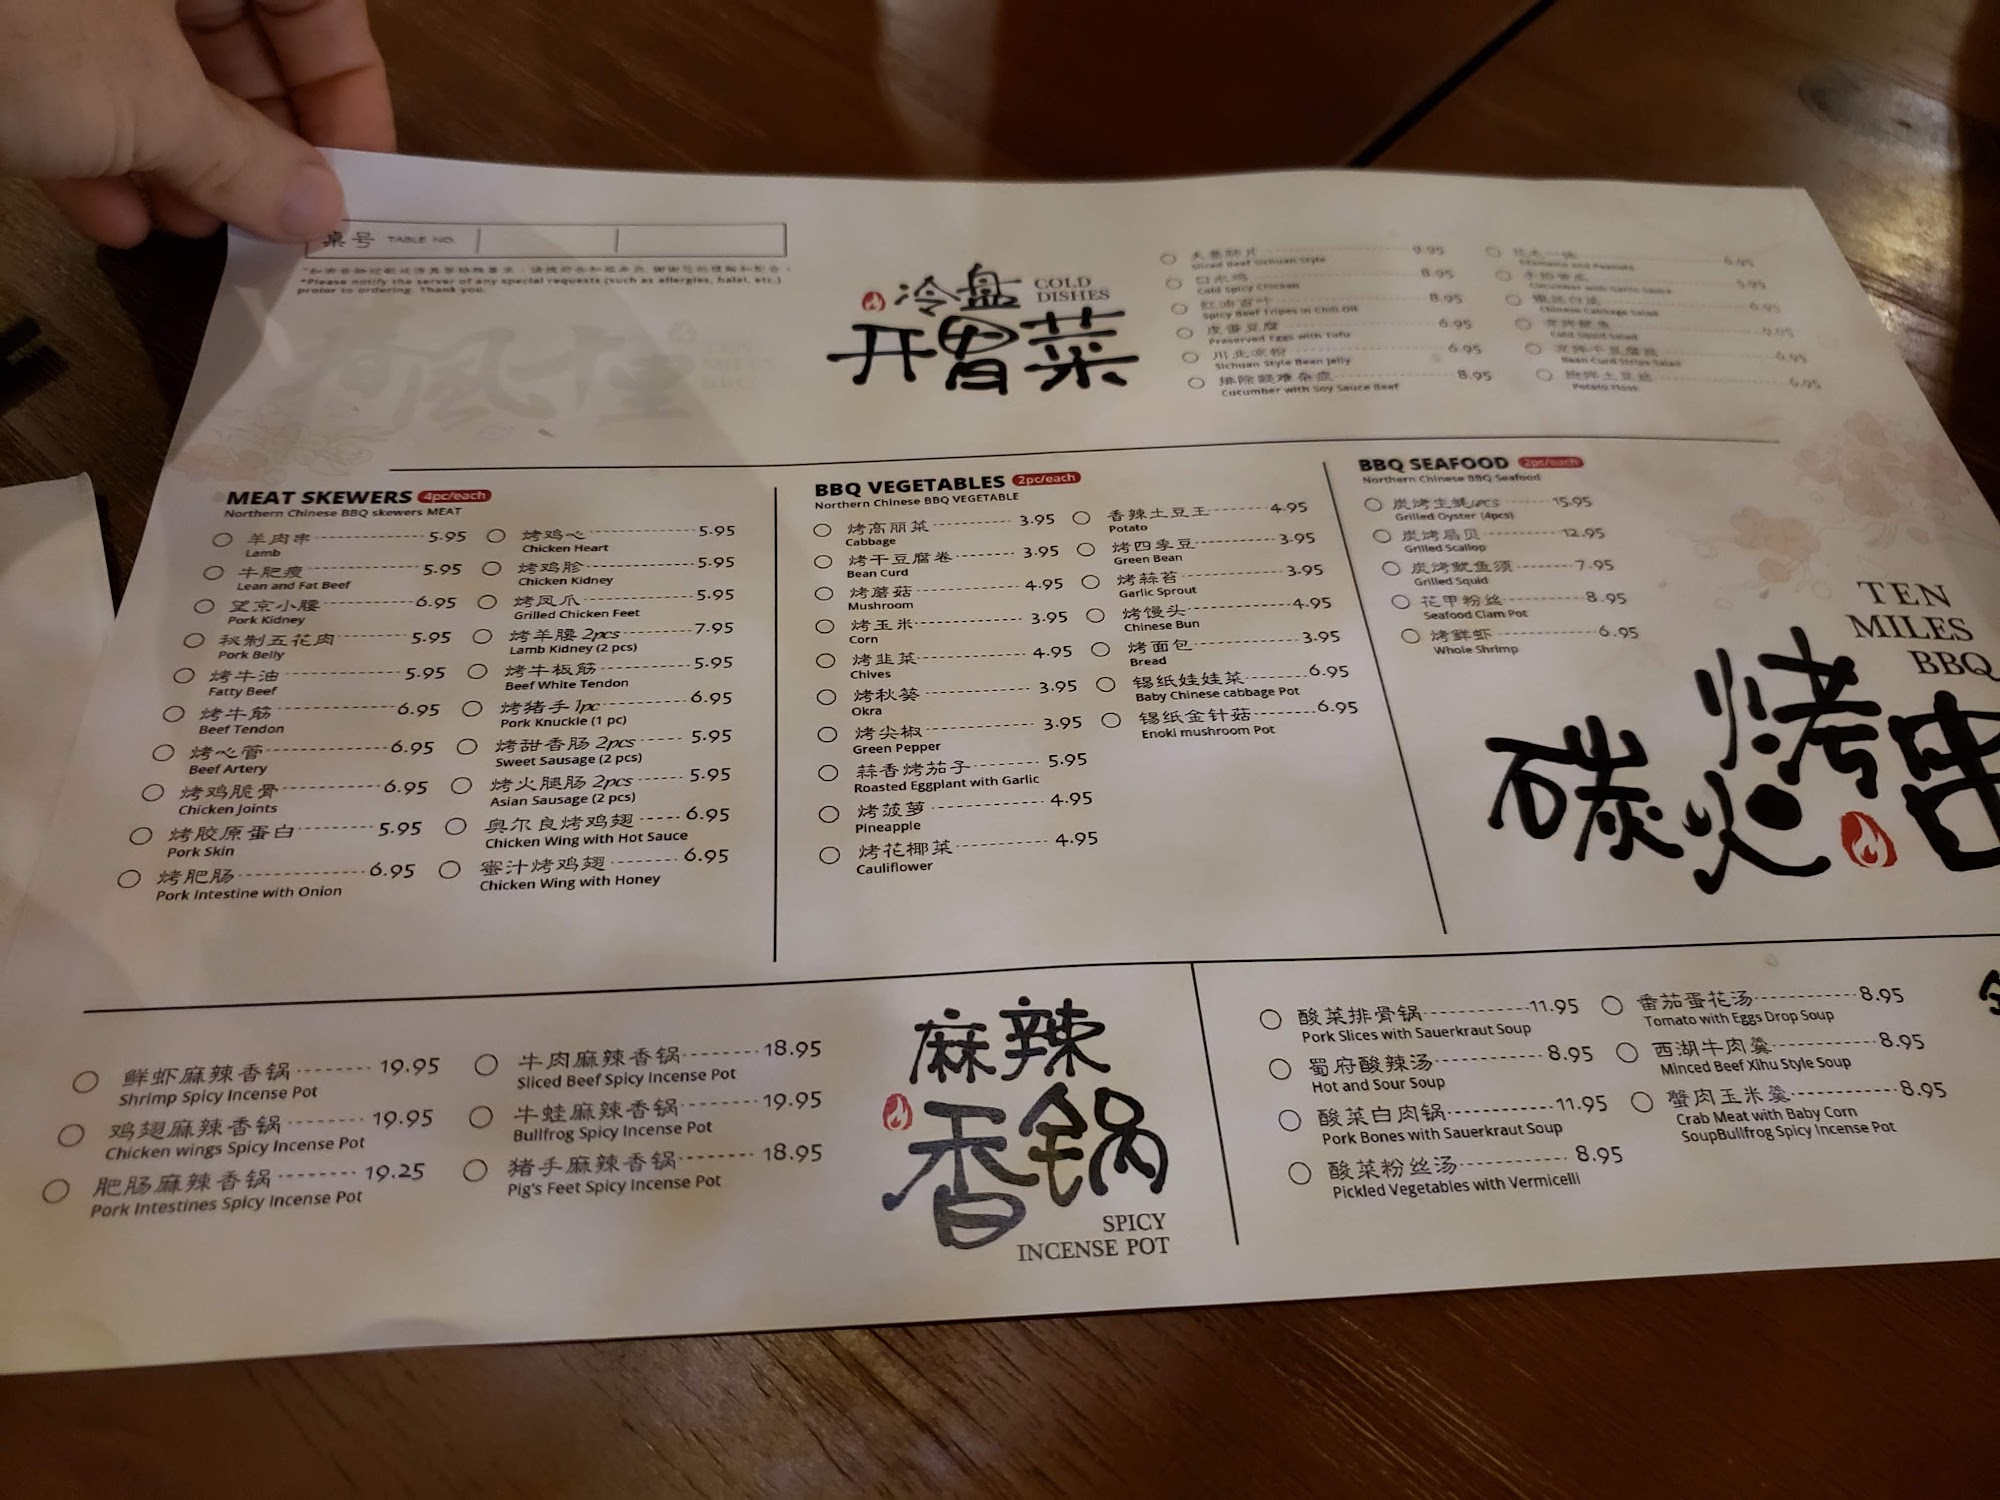 桌号 TABLE NO.
*Please notify the server of any special requests (such as allergies, halal, etc.)
prior to ordering. Thank you.
冷盘 COLD DISHES
开胃菜
夫妻肺片 9.95
Sliced Beef Sichuan Style
口水鸡 8.95
Cold Spicy Chicken
红油百叶 8.95
Spicy Beef Tripes in Chili Oil
皮蛋豆腐 6.95
Preserved Eggs with Tofu
川北凉粉 6.95
Sichuan Style Bean Jelly
排除疑难杂症 8.95
Cucumber with Soy Sauce Beef
6.95
Edamame and Peanuts
5.95
Cucumber with Garlic Sauce
6.95
Chinese Cabbage Salad
9.95
Cold Squid Salad
6.95
Bean Curd Strips Salad
6.95
Potato Floss
MEAT SKEWERS 4pc/each
Northern Chinese BBQ skewers MEAT
羊肉串 5.95
Lamb
牛肥瘦 5.95
Lean and Fat Beef
望京小腰 6.95
Pork Kidney
秘制五花肉 5.95
Pork Belly
烤牛油 5.95
Fatty Beef
烤牛筋 6.95
Beef Tendon
烤心管 6.95
Beef Artery
烤鸡脆骨 6.95
Chicken Joints
烤胶原蛋白 5.95
Pork Skin
烤肥肠 6.95
Pork Intestine with Onion
烤鸡心 5.95
Chicken Heart
烤鸡胗 5.95
Chicken Kidney
烤凤爪 5.95
Grilled Chicken Feet
烤羊腰 2pcs 7.95
Lamb Kidney (2 pcs)
烤牛板筋 5.95
Beef White Tendon
烤猪手 1pc 6.95
Pork Knuckle (1 pc)
烤甜香肠 2pcs 5.95
Sweet Sausage (2 pcs)
烤火腿肠 2pcs 5.95
Asian Sausage (2 pcs)
奥尔良烤鸡翅 6.95
Chicken Wing with Hot Sauce
蜜汁烤鸡翅 6.95
Chicken Wing with Honey
BBQ VEGETABLES 2pc/each
Northern Chinese BBQ VEGETABLE
烤高丽菜 3.95
Cabbage
烤干豆腐卷 3.95
Bean Curd
烤蘑菇 4.95
Mushroom
烤玉米 3.95
Corn
烤韭菜 4.95
Chives
烤秋葵 3.95
Okra
烤尖椒 3.95
Green Pepper
蒜香烤茄子 5.95
Roasted Eggplant with Garlic
烤菠萝 4.95
Pineapple
烤花椰菜 4.95
Cauliflower
香辣土豆王 4.95
Potato
烤四季豆 3.95
Green Bean
烤蒜苔 3.95
Garlic Sprout
烤馒头 4.95
Chinese Bun
烤面包 3.95
Bread
锡纸娃娃菜 6.95
Baby Chinese cabbage Pot
锡纸金针菇 6.95
Enoki mushroom Pot
BBQ SEAFOOD 2pc/each
Northern Chinese BBQ Seafood
炭烤生蚝4pcs 15.95
Grilled Oyster (4pcs)
炭烤扇贝 12.95
Grilled Scallop
炭烤鱿鱼须 7.95
Grilled Squid
花甲粉丝 8.95
Seafood Clam Pot
烤鲜虾 6.95
Whole Shrimp
TEN
MILES
BBQ
碳火烤串
鲜虾麻辣香锅 19.95
Shrimp Spicy Incense Pot
鸡翅麻辣香锅 19.95
Chicken wings Spicy Incense Pot
肥肠麻辣香锅 19.25
Pork Intestines Spicy Incense Pot
牛肉麻辣香锅 18.95
Sliced Beef Spicy Incense Pot
牛蛙麻辣香锅 19.95
Bullfrog Spicy Incense Pot
猪手麻辣香锅 18.95
Pig's Feet Spicy Incense Pot
麻辣
香锅
SPICY
INCENSE POT
酸菜排骨锅 11.95
Pork Slices with Sauerkraut Soup
蜀府酸辣汤 8.95
Hot and Sour Soup
酸菜白肉锅 11.95
Pork Bones with Sauerkraut Soup
酸菜粉丝汤 8.95
Pickled Vegetables with Vermicelli
番茄蛋花汤 8.95
Tomato with Eggs Drop Soup
西湖牛肉羹 8.95
Minced Beef Xihu Style Soup
蟹肉玉米羹 8.95
Crab Meat with Baby Corn
SoupBullfrog Spicy Incense Pot